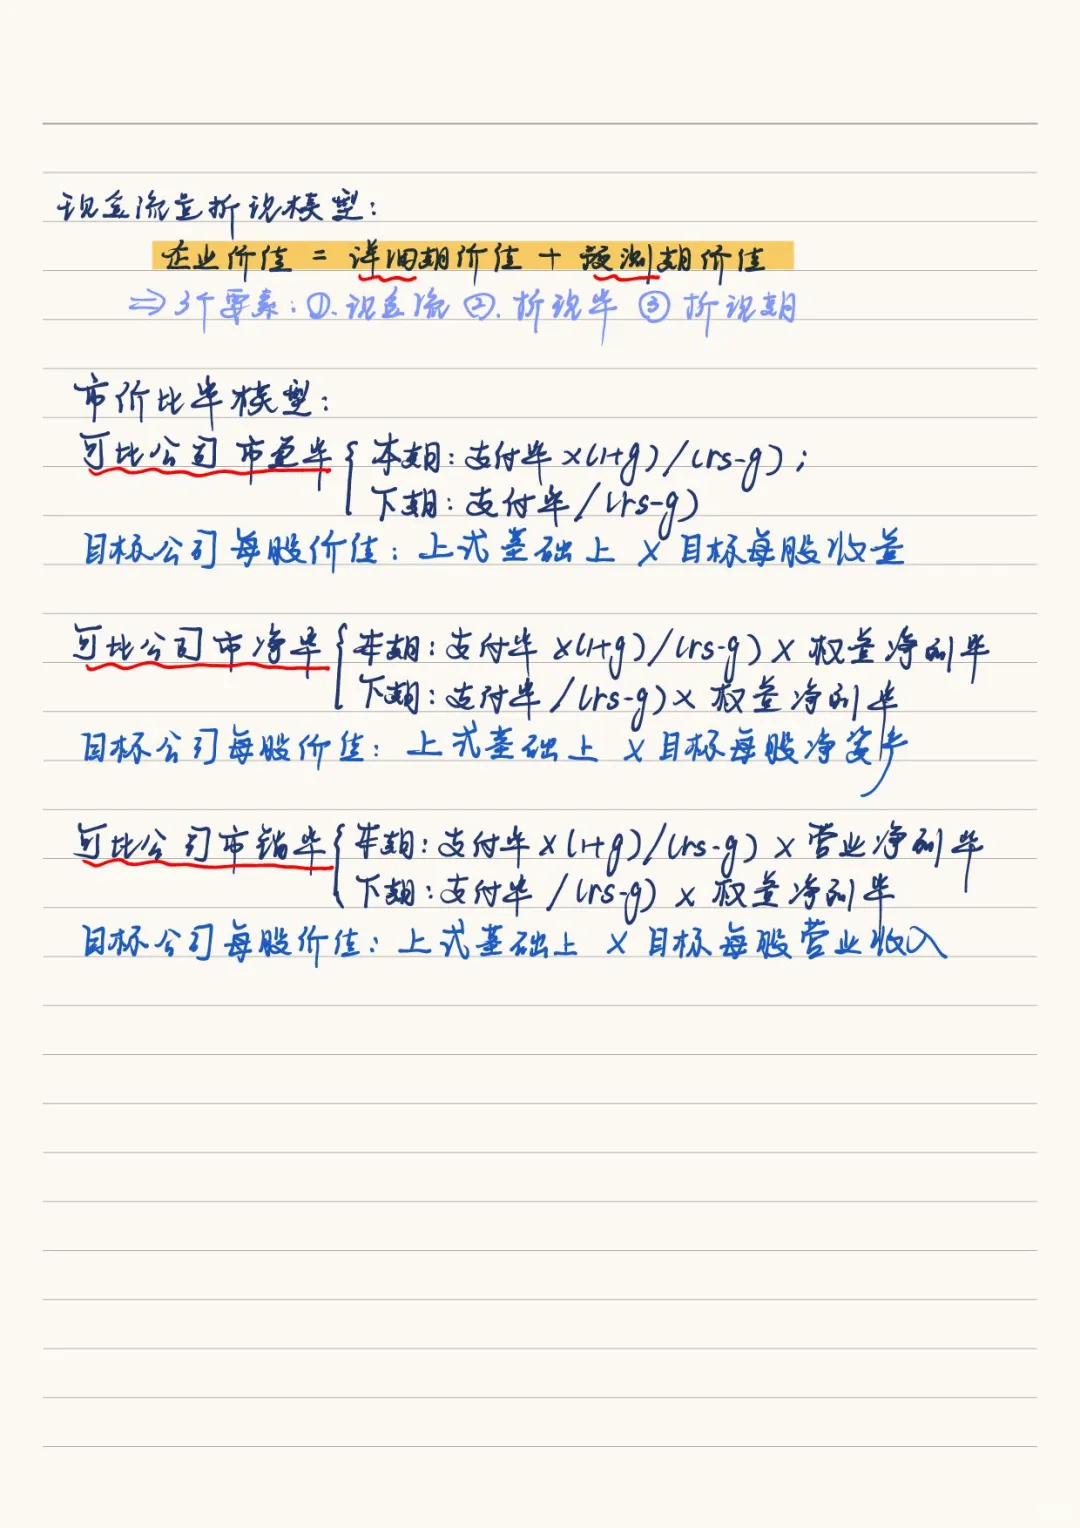 现金流量折现模型:
企业价值 = 详细期价值 + 预测期价值
⇒ 3个要素: ①. 现金流 ②. 折现率 ③ 折现期
市价比率模型:
可比公司市盈率 { 本期: 支付率×(1+g)/(rs-g);
下期: 支付率/(rs-g)
目标公司每股价值: 上式基础上 × 目标每股收益
可比公司市净率 { 本期: 支付率×(1+g)/(rs-g)× 权益净利率
下期: 支付率/(rs-g)× 权益净利率
目标公司每股价值: 上式基础上 ×目标每股净资产
可比公司市销率 { 本期: 支付率×(1+g)/(rs-g) × 营业净利率
下期: 支付率/(rs-g) × 权益净利率
目标公司每股价值: 上式基础上 × 目标每股营业收入